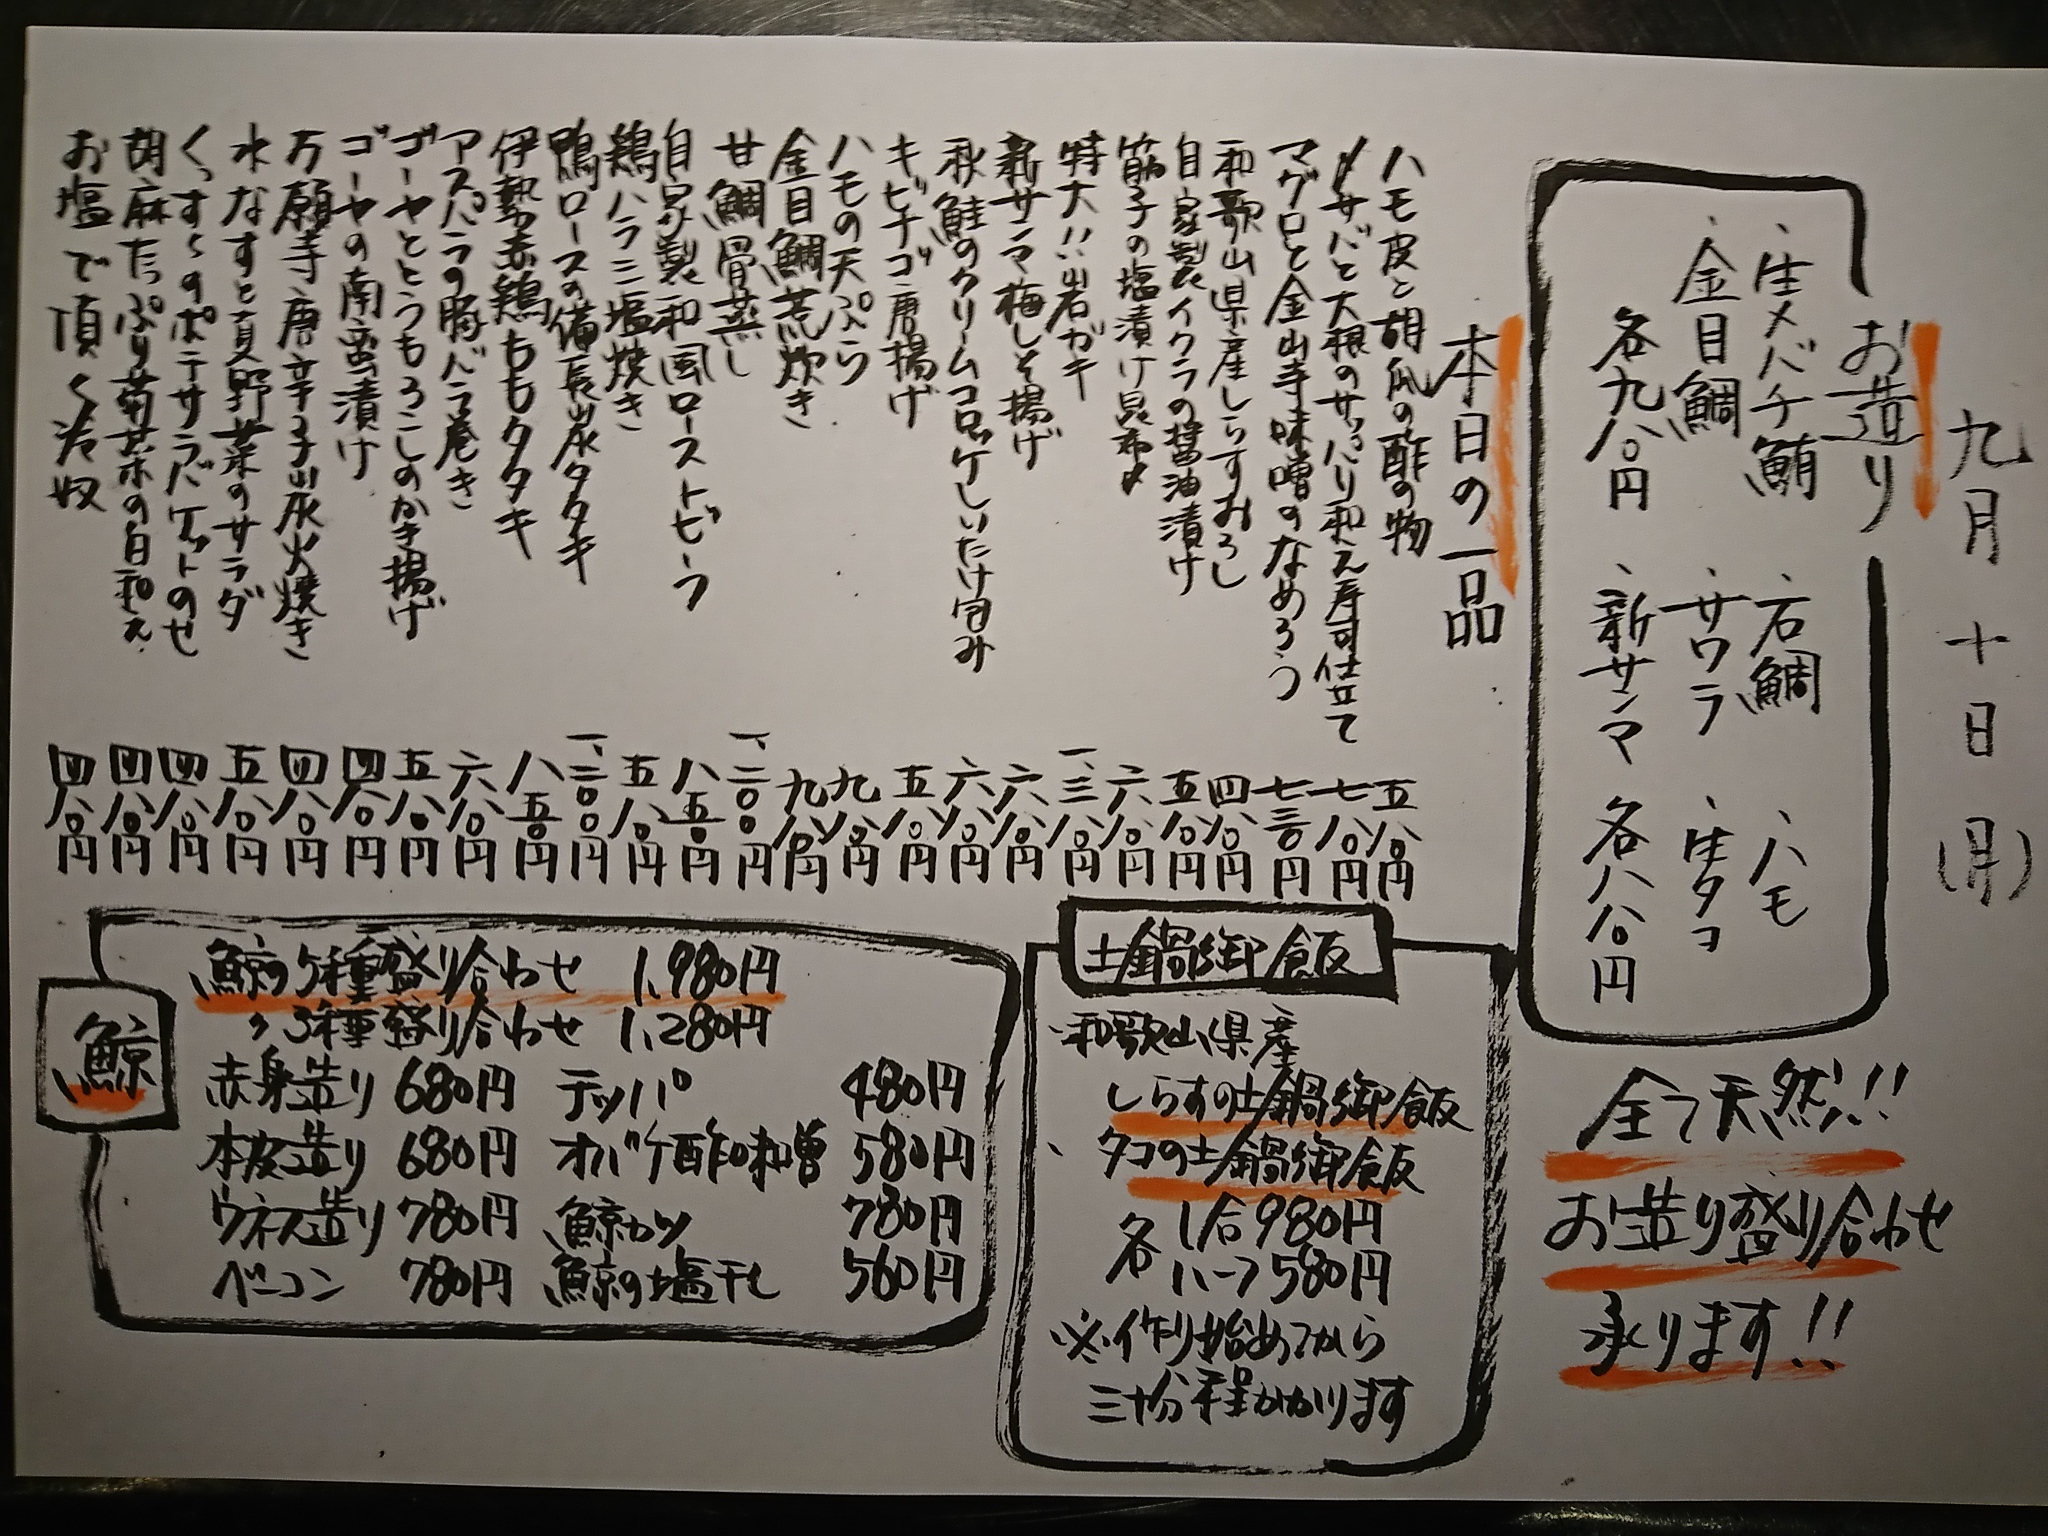 九月十日(月)
お造り
・生メバチ鮪
・石鯛
・ハモ
・金目鯛
・サワラ
・生タコ
各九八〇円
・新サンマ
各八八〇円
全て天然!!
お造り盛り合わせ
承ります!!
本日の一品
ハモ皮と胡瓜の酢の物 五八〇円
〆サバと大根のサッパリ和え寿司仕立て 七八〇円
マグロと金山寺味噌のなめろう 七三〇円
和歌山県産しらすおろし 四八〇円
自家製イクラの醤油漬け 五八〇円
筋子の塩漬け昆布〆 六八〇円
特大!!岩ガキ 一、三八〇円
新サンマ梅しそ揚げ 六八〇円
秋鮭のクリームコロッケしいたけ包み 六八〇円
キビナゴ唐揚げ 五八〇円
ハモの天ぷら 九八〇円
金目鯛荒炊き 九八〇円
甘鯛骨蒸し 一、二〇〇円
自家製和風ローストビーフ 八五〇円
鶏ハラミ塩焼き 五八〇円
鴨ロースの備長炭タタキ 一、二〇〇円
伊勢赤鶏ももタタキ 八五〇円
アスパラの豚バラ巻き 六八〇円
ゴーヤととうもろこしのかき揚げ 五八〇円
ゴーヤの南蛮漬け 四八〇円
万願寺唐辛子炭火焼き 四八〇円
水なすと夏野菜のサラダ 五八〇円
くっすんのポテサラバケットのせ 四八〇円
胡麻たっぷり菊菜の白和え 四八〇円
お塩で頂く冷奴 四八〇円
土鍋御飯
・和歌山県産
しらすの土鍋御飯
・タコの土鍋御飯
各 1合980円
ハーフ580円
※作り始めてから
三十分程かかります
鯨
鯨の5種盛り合わせ 1,980円
〃 3種盛り合わせ 1,280円
赤身造り 680円 テッパ 480円
本皮造り 680円 オバケ酢味噌 580円
ウネス造り 780円 鯨カツ 780円
ベーコン 780円 鯨の塩干し 560円